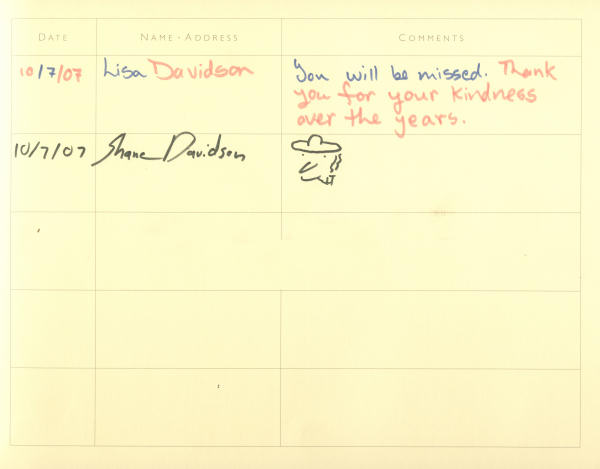 DATE NAME · ADDRESS COMMENTS
10/7/07 Lisa Davidson You will be missed. Thank
you for your kindness
over the years.
10/7/07 Shane Davidson